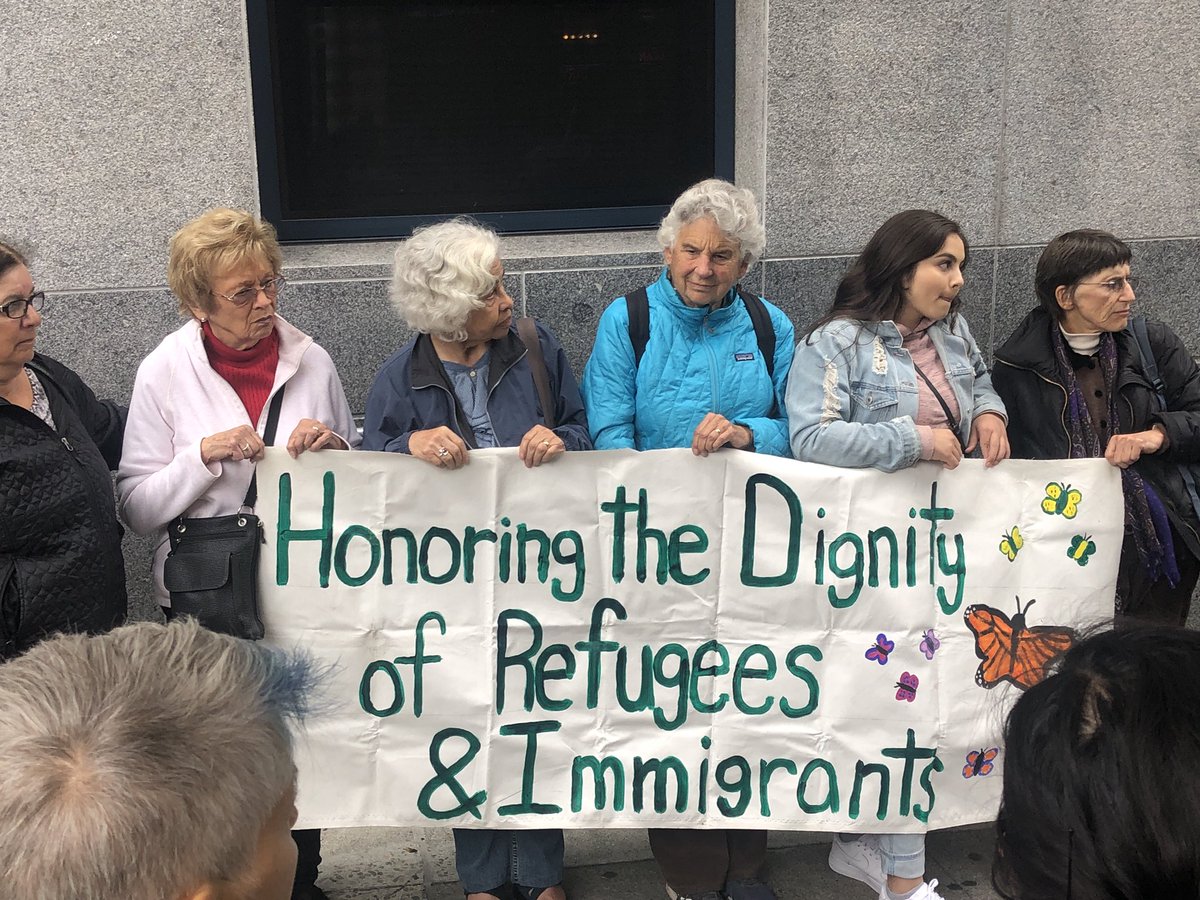 Honoring the Dignity
of Refugees
& Immigrants
patagonia